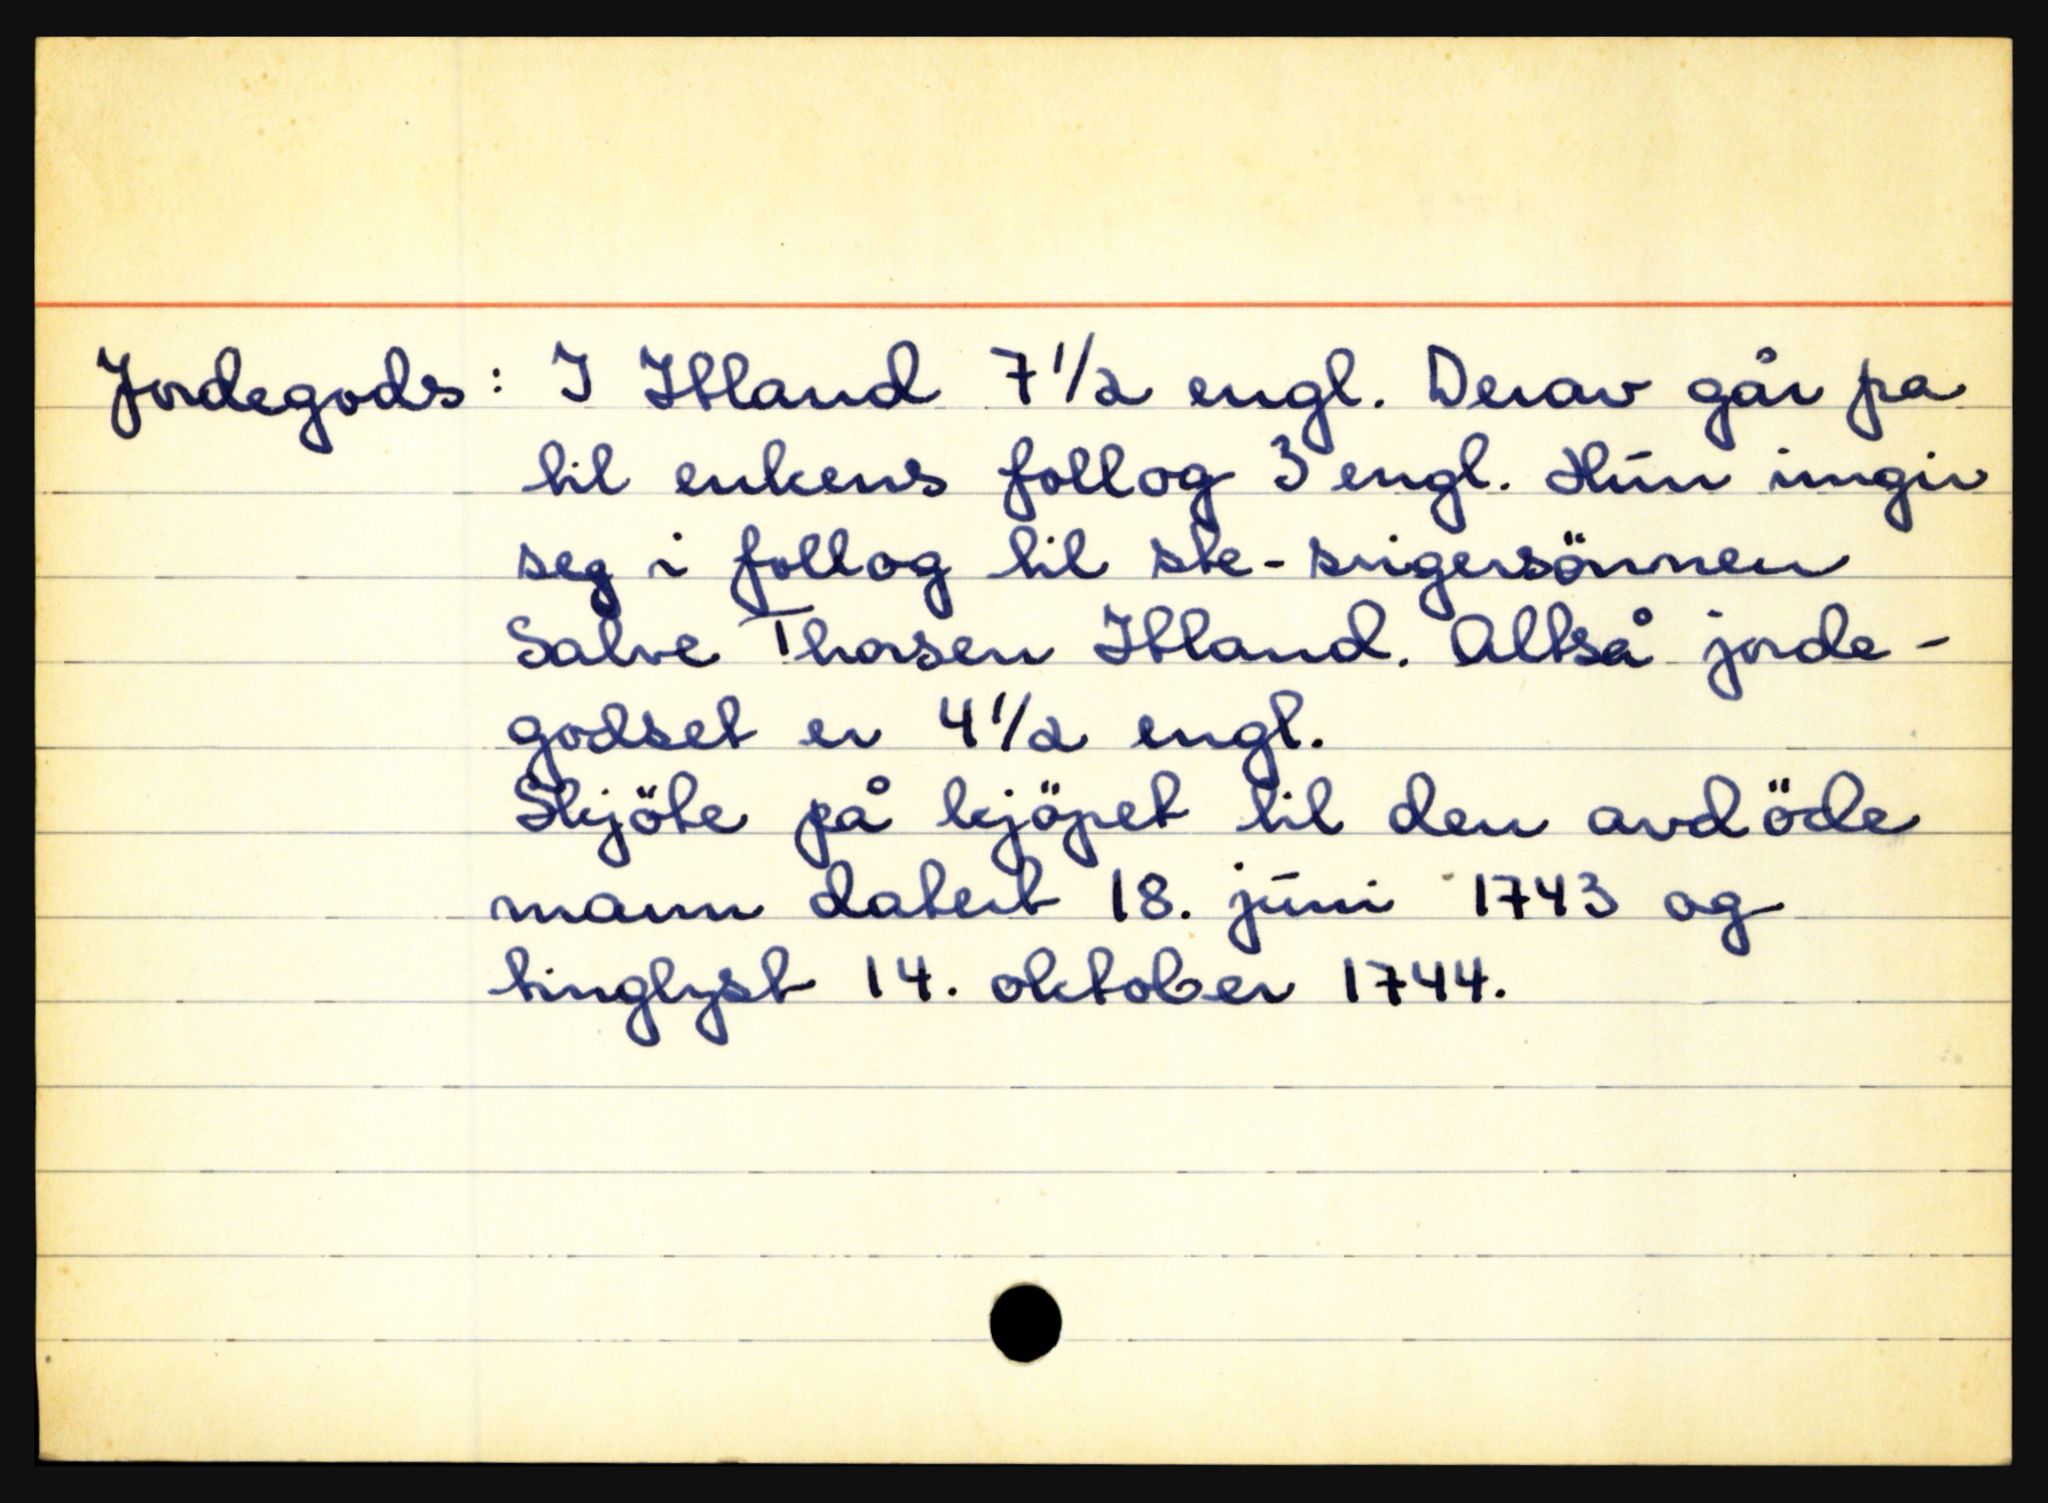 Jordegods: I Ibland 7 1/2 engl. Derav går fra
til enkens follog 3 engl. Hun inngir
seg i follog til ste-svigersönnen
Salve Thorsen Ibland. Altså jorde-
godset er 4 1/2 engl.
Skjöte på kjöpet til den avdöde
mann datert 18. juni 1743 og
tinglyst 14. oktober 1744.